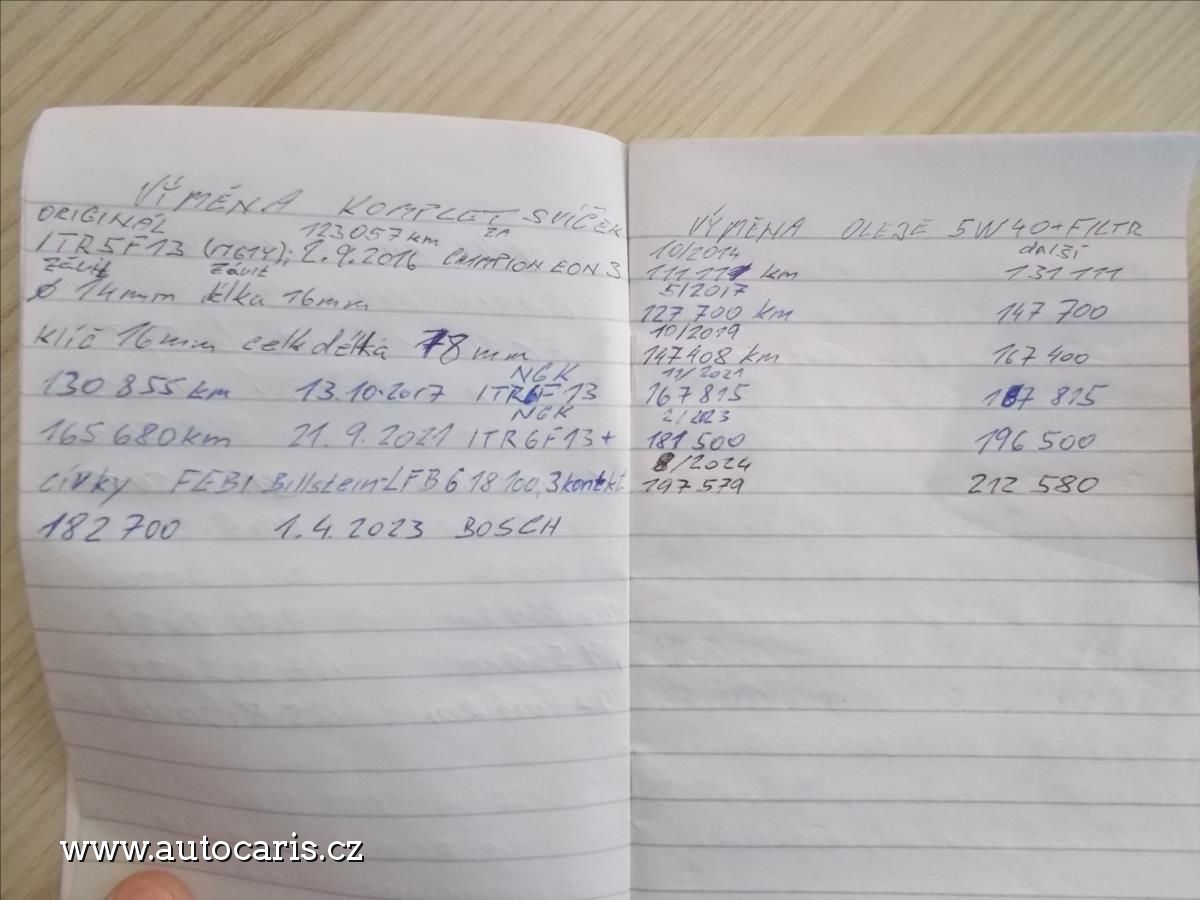 VÝMĚNA KOMPLET SVÍČEK
ORIGINÁL 123057 km ZA
ITR5F13 (     ); 2.9.2016 CHAMPION EON 3
závit závit
Ø 14mm délka 16mm
KLÍČ 16mm celk délka 78mm
NGK
130 855 km 13.10.2017 ITR6F13
NGK
165 680km 21.9.2021 ITR6F13+
cívky FEBI Billstein-LFB618100, 3kontakt
182 700 1.4.2023 BOSCH
VÝMĚNA OLEJE 5W40+FILTR
10/2014 další
111 111 km 131 111
5/2017
127 700 km 147 700
10/2019
147 408 km 167 400
11/2021
167 815 187 815
2/2023
181 500 196 500
8/2024
197 579 212 580
www.autocaris.cz